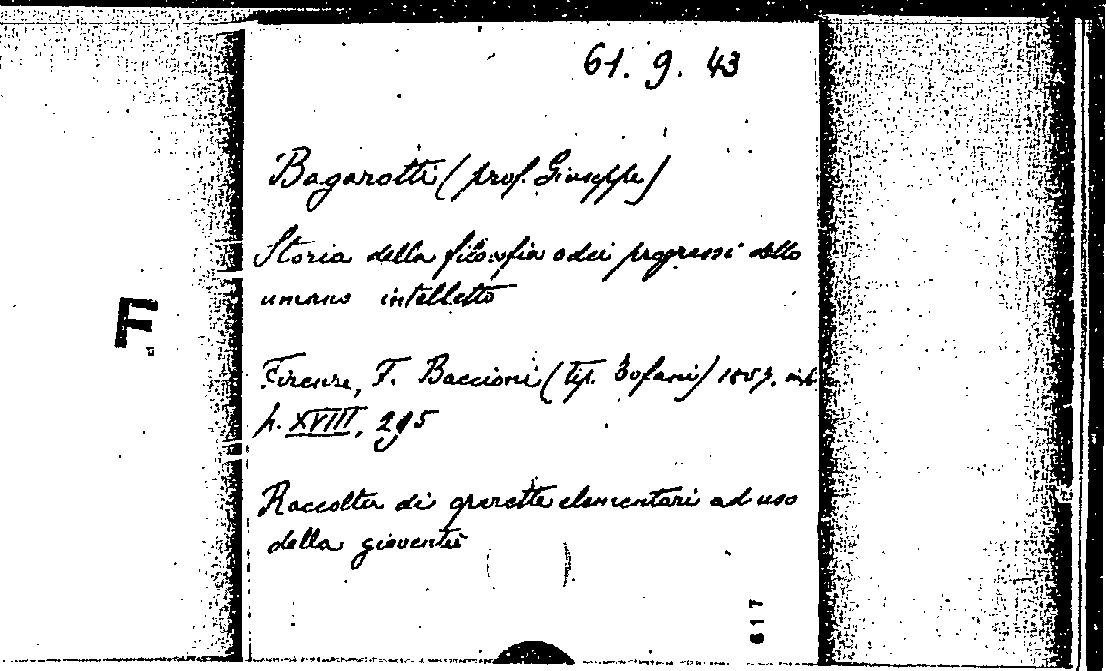 61. 9. 43
Bagarotti (prof. Giuseppe)
Storia della filosofia o dei progressi dello
umano intelletto
F
Firenze, F. Baccioni (tip. Tofani) 1857.
p. XVIII, 295
Raccolta di operette elementari ad uso
della gioventù
617